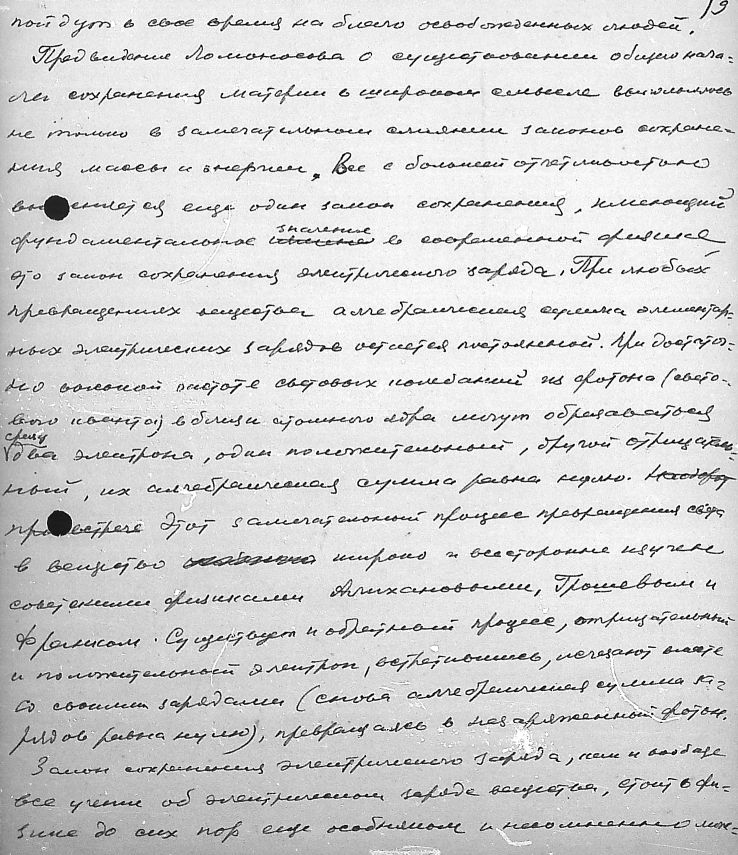 19
пойдут в свое время на благо освобожденных людей.
Предвидение Ломоносова о существовании общего нача-
ла сохранения материи в широком смысле выполнилось
не только в замечательном слиянии законов сохране-
ния массы и энергии. Все с большей отчетливостью
выясняется еще один закон сохранения, имеющий
значение
фундаментальное в современной физике
это закон сохранения электрического заряда. При любых
превращениях вещества алгебраическая сумма элементар-
ных электрических зарядов остается постоянной. При достаточ-
но высокой частоте световых колебаний из фотона (свето-
вого кванта) вблизи атомного ядра могут образоваться
сразу
два электрона, один положительный, другой отрицатель-
ный, их алгебраическая сумма равна нулю. Наоборот
при встрече Этот замечательный процесс превращения света
в вещество широко и всесторонне изучен
советскими физиками Алихановыми, Грошевым и
Франком. Существует и обратный процесс, отрицательный
и положительный электрон, встретившись, исчезают вместе
со своими зарядами (снова алгебраическая сумма за-
рядов равна нулю), превращаясь в незаряженный фотон.
Закон сохранения электрического заряда, как и вообще
все учение об электрическом заряде вещества, стоит в фи-
зике до сих пор еще особняком и несомненно мож-